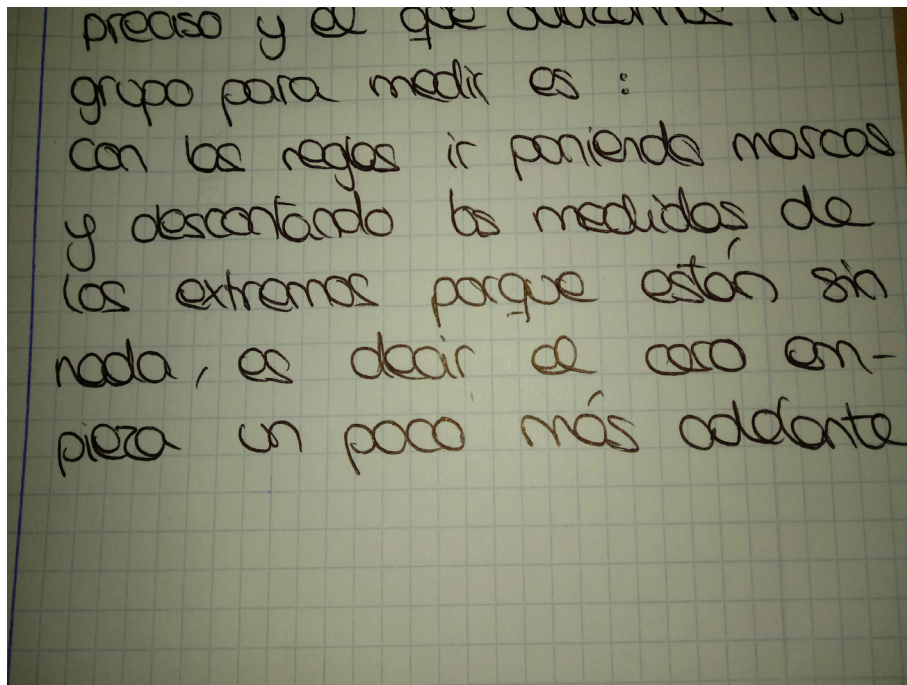 preciso y el que utilizamos mi
grupo para medir es :
con las reglas ir poniendo marcas
y descontando las medidas de
los extremos porque están sin
nada, es decir el cero em-
pieza un poco más adelante